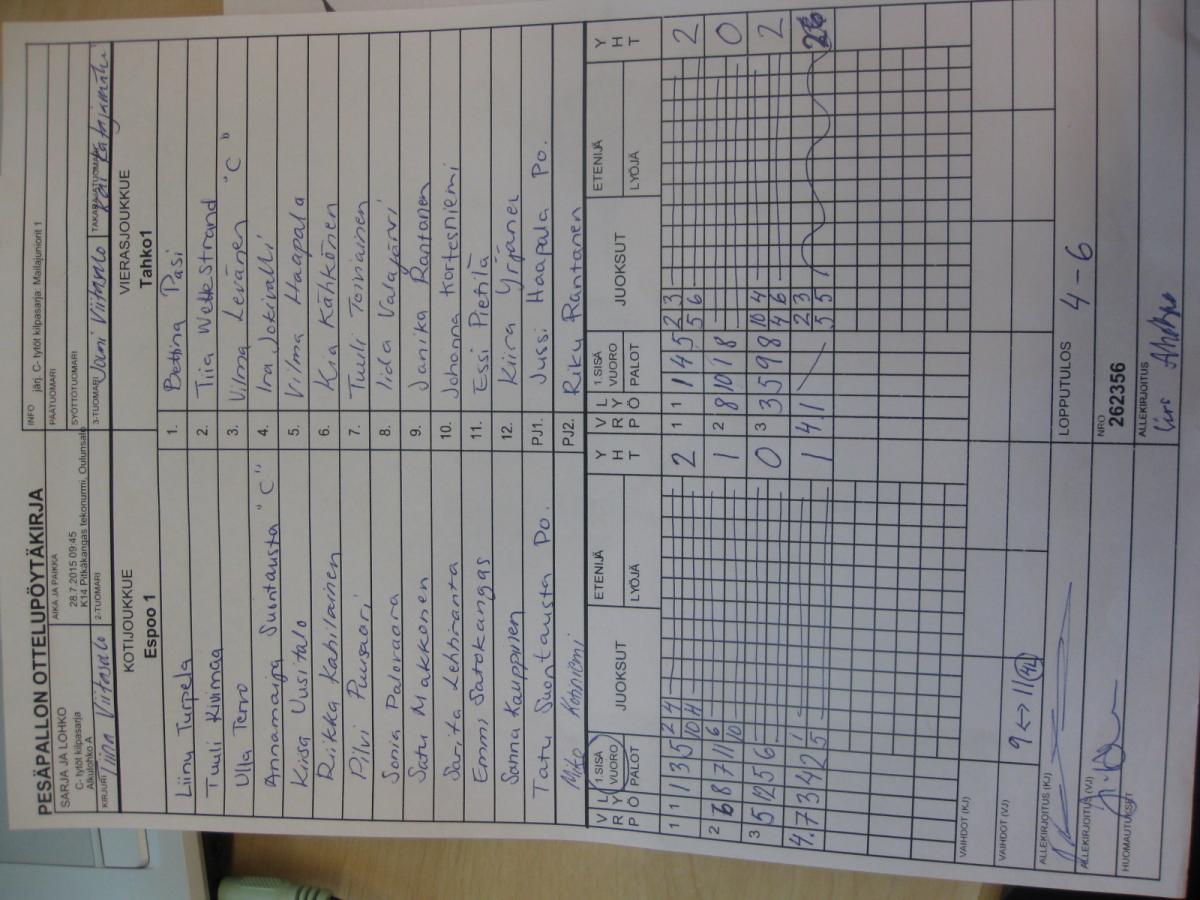 PESÄPALLON OTTELUPÖYTÄKIRJA
SARJA JA LOHKO
C- tytöt kilpasarja
Alkulohko A
AIKA JA PAIKKA
28.7.2015 09:45
K14 Pitkäkangas tekonurmi, Oulunsalo
INFO järj. C- tytöt kilpasarja: Mailajuniorit 1
PÄÄTUOMARI
SYÖTTÖTUOMARI
KIRJURI Tiina Viitasalo
2-TUOMARI
3-TUOMARI Jani Viitasalo
TAKARAJATUOMARI Kai Katajamäki
KOTIJOUKKUE
Espoo 1
VIERASJOUKKUE
Tahko1
Liinu Turpela 1. Bettina Pasi
Tuuli Kivimaa 2. Tiia Wettestrand
Ulla Tervo 3. Vilma Levänen "C"
Annamaija Suontausta "C" 4. Ina Jokivalli
Kiisa Uusitalo 5. Vilma Haapala
Riikka Kahilainen 6. Kia Kähkönen
Pilvi Puusaari 7. Tuuli Toiviainen
Sonia Palovaara 8. Iida Valajärvi
Satu Makkonen 9. Janika Rantanen
Sarita Lehtiranta 10. Johanna Kortesniemi
Emmi Satokangas 11. Essi Pietilä
Sanna Kauppinen 12. Kiira Yrjänen
Tatu Suontausta Po. PJ1. Jussi Haapala Po.
Mika Kohniemi PJ2. Riku Rantanen
V R L Y Ö P 1.SISÄ VUORO PALOT JUOKSUT ETENIJÄ LYÖJÄ Y H T
V R L Y Ö P 1.SISÄ VUORO PALOT JUOKSUT ETENIJÄ LYÖJÄ Y H T
1 1 1 3 5 2 4 10 11 2
1 1 1 4 5 2 3 5 6 2
2 6 8 7 11 6 10 1
2 8 10 1 8 0
3 5 12 5 6 0
3 3 5 9 8 10 4 4 6 2
4. 7 3 4 2 1 5 1
1 4.1 2 3 5 5
VAIHDOT (KJ)
VAIHDOT (VJ) 9 <-> 11 (4L)
ALLEKIRJOITUS (KJ)
LOPPUTULOS 4 - 6
ALLEKIRJOITUS (VJ)
NRO
262356
HUOMAUTUKSET
ALLEKIRJOITUS